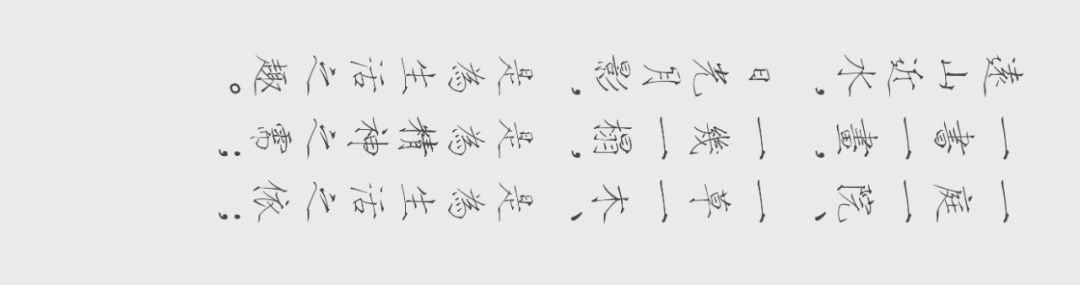 一庭一院、一草一木、是為生活之依；
一書一畫，一幾一榻，是為精神之需；
遠山近水，日光月影，是為生活之趣。